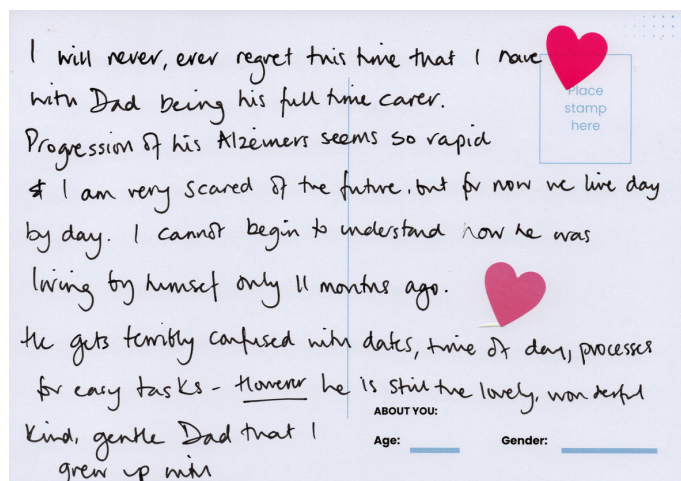 I will never, ever regret this time that I have
with Dad being his full time carer.
Place
stamp
here
Progression of his Alzeimers seems so rapid
& I am very scared of the future, but for now we live day
by day. I cannot begin to understand how he was
living by himself only 11 months ago.
He gets terribly confused with dates, time of day, processes
for easy tasks - However he is still the lovely, wonderful
kind, gentle Dad that I
grew up with
ABOUT YOU:
Age:
Gender: